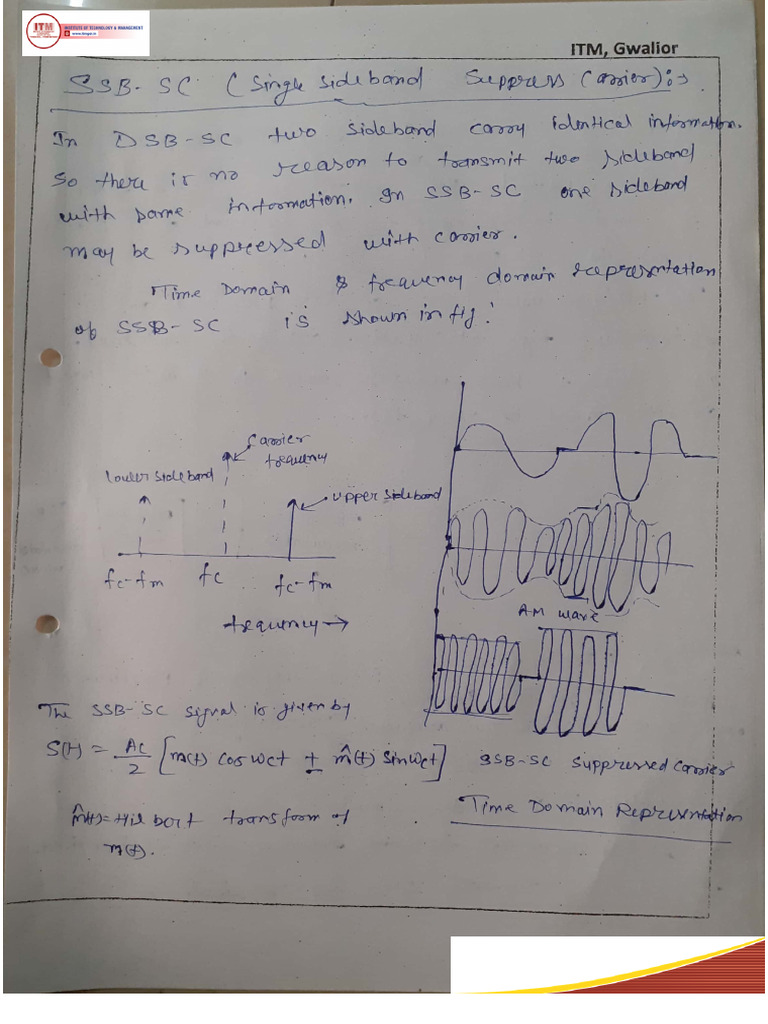 ITM
INSTITUTE OF TECHNOLOGY & MANAGEMENT
ITM, Gwalior
SSB-SC (Single Sideband Suppress Carrier):→
In DSB-SC two sideband carry identical information.
So there is no reason to transmit two sideband
with same information. In SSB-SC one sideband
may be suppressed with carrier.
Time Domain & frequency domain representation
of SSB-SC is shown in fig:
Carrier
frequency
Lower sideband
Upper sideband
fc-fm fc fc-fm
frequency →
AM wave
The SSB-SC signal is given by
S(t) = Ac/2 [m(t) cosωct ± m̂(t) sinωct]
SSB-SC Suppressed Carrier
m̂(t) = Hilbort transform of
m(t).
Time Domain Represntation